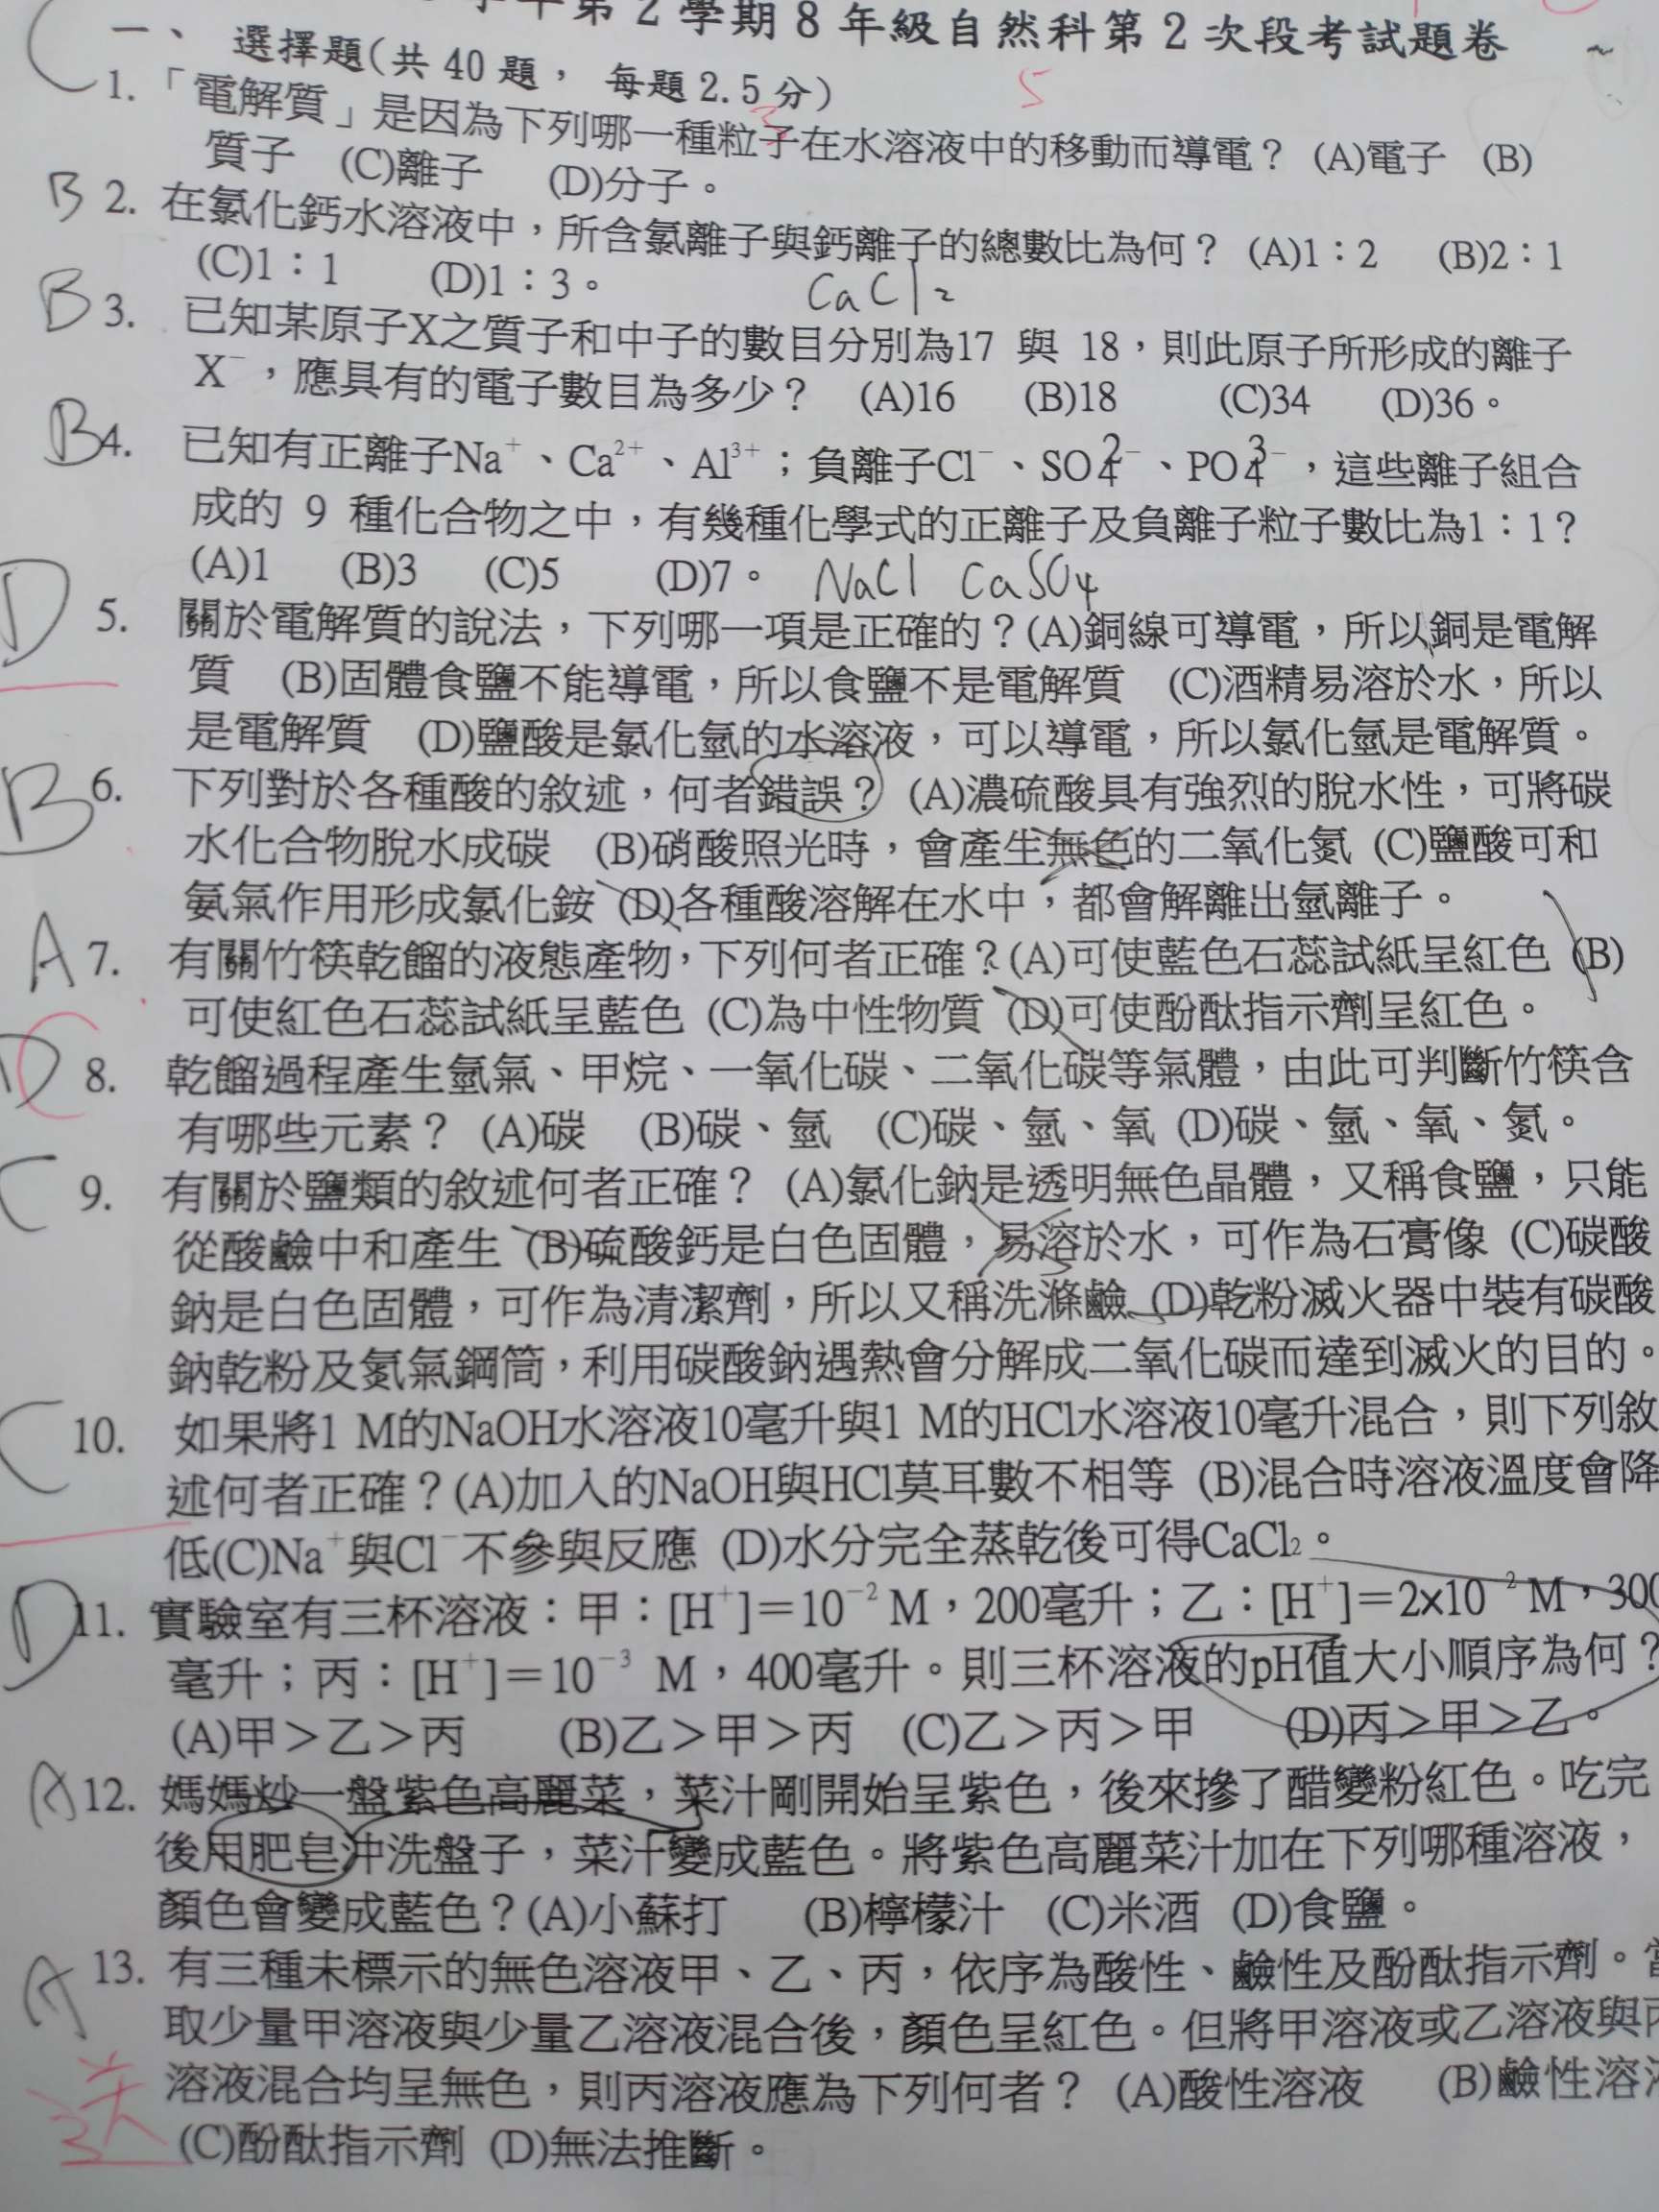 學年第2學期8年級自然科第2次段考試題卷
一、 選擇題(共40題, 每題2.5分)
C 1.「電解質」是因為下列哪一種粒子在水溶液中的移動而導電? (A)電子 (B)
質子 (C)離子 (D)分子。
B 2. 在氯化鈣水溶液中,所含氯離子與鈣離子的總數比為何? (A)1:2 (B)2:1
(C)1:1 (D)1:3。 CaCl2
B 3. 已知某原子X之質子和中子的數目分別為17 與 18,則此原子所形成的離子
X⁻,應具有的電子數目為多少? (A)16 (B)18 (C)34 (D)36。
B 4. 已知有正離子Na⁺、Ca²⁺、Al³⁺;負離子Cl⁻、SO₄²⁻、PO₄³⁻,這些離子組合
成的 9 種化合物之中,有幾種化學式的正離子及負離子粒子數比為1:1?
(A)1 (B)3 (C)5 (D)7。 NaCl CaSO4
D 5. 關於電解質的說法,下列哪一項是正確的?(A)銅線可導電,所以銅是電解
質 (B)固體食鹽不能導電,所以食鹽不是電解質 (C)酒精易溶於水,所以
是電解質 (D)鹽酸是氯化氫的水溶液,可以導電,所以氯化氫是電解質。
B 6. 下列對於各種酸的敘述,何者錯誤? (A)濃硫酸具有強烈的脫水性,可將碳
水化合物脫水成碳 (B)硝酸照光時,會產生無色的二氧化氮 (C)鹽酸可和
氨氣作用形成氯化銨 (D)各種酸溶解在水中,都會解離出氫離子。
A 7. 有關竹筷乾餾的液態產物,下列何者正確?(A)可使藍色石蕊試紙呈紅色 (B)
可使紅色石蕊試紙呈藍色 (C)為中性物質 (D)可使酚酞指示劑呈紅色。
D 8. 乾餾過程產生氫氣、甲烷、一氧化碳、二氧化碳等氣體,由此可判斷竹筷含
有哪些元素? (A)碳 (B)碳、氫 (C)碳、氫、氧 (D)碳、氫、氧、氮。
C 9. 有關於鹽類的敘述何者正確? (A)氯化鈉是透明無色晶體,又稱食鹽,只能
從酸鹼中和產生 (B)硫酸鈣是白色固體,易溶於水,可作為石膏像 (C)碳酸
鈉是白色固體,可作為清潔劑,所以又稱洗滌鹼 (D)乾粉滅火器中裝有碳酸
鈉乾粉及氮氣鋼筒,利用碳酸鈉遇熱會分解成二氧化碳而達到滅火的目的。
C 10. 如果將1 M的NaOH水溶液10毫升與1 M的HCl水溶液10毫升混合,則下列敘
述何者正確?(A)加入的NaOH與HCl莫耳數不相等 (B)混合時溶液溫度會降
低(C)Na⁺與Cl⁻不參與反應 (D)水分完全蒸乾後可得CaCl₂。
D 11. 實驗室有三杯溶液:甲:[H⁺]=10⁻² M,200毫升;乙:[H⁺]=2x10⁻² M,300
毫升;丙:[H⁺]=10⁻³ M,400毫升。則三杯溶液的pH值大小順序為何?
(A)甲>乙>丙 (B)乙>甲>丙 (C)乙>丙>甲 (D)丙>甲>乙。
A 12. 媽媽炒一盤紫色高麗菜,菜汁剛開始呈紫色,後來摻了醋變粉紅色。吃完
後用肥皂沖洗盤子,菜汁變成藍色。將紫色高麗菜汁加在下列哪種溶液,
顏色會變成藍色?(A)小蘇打 (B)檸檬汁 (C)米酒 (D)食鹽。
A 13. 有三種未標示的無色溶液甲、乙、丙,依序為酸性、鹼性及酚酞指示劑。當
取少量甲溶液與少量乙溶液混合後,顏色呈紅色。但將甲溶液或乙溶液與丙
溶液混合均呈無色,則丙溶液應為下列何者? (A)酸性溶液 (B)鹼性溶液
送 (C)酚酞指示劑 (D)無法推斷。